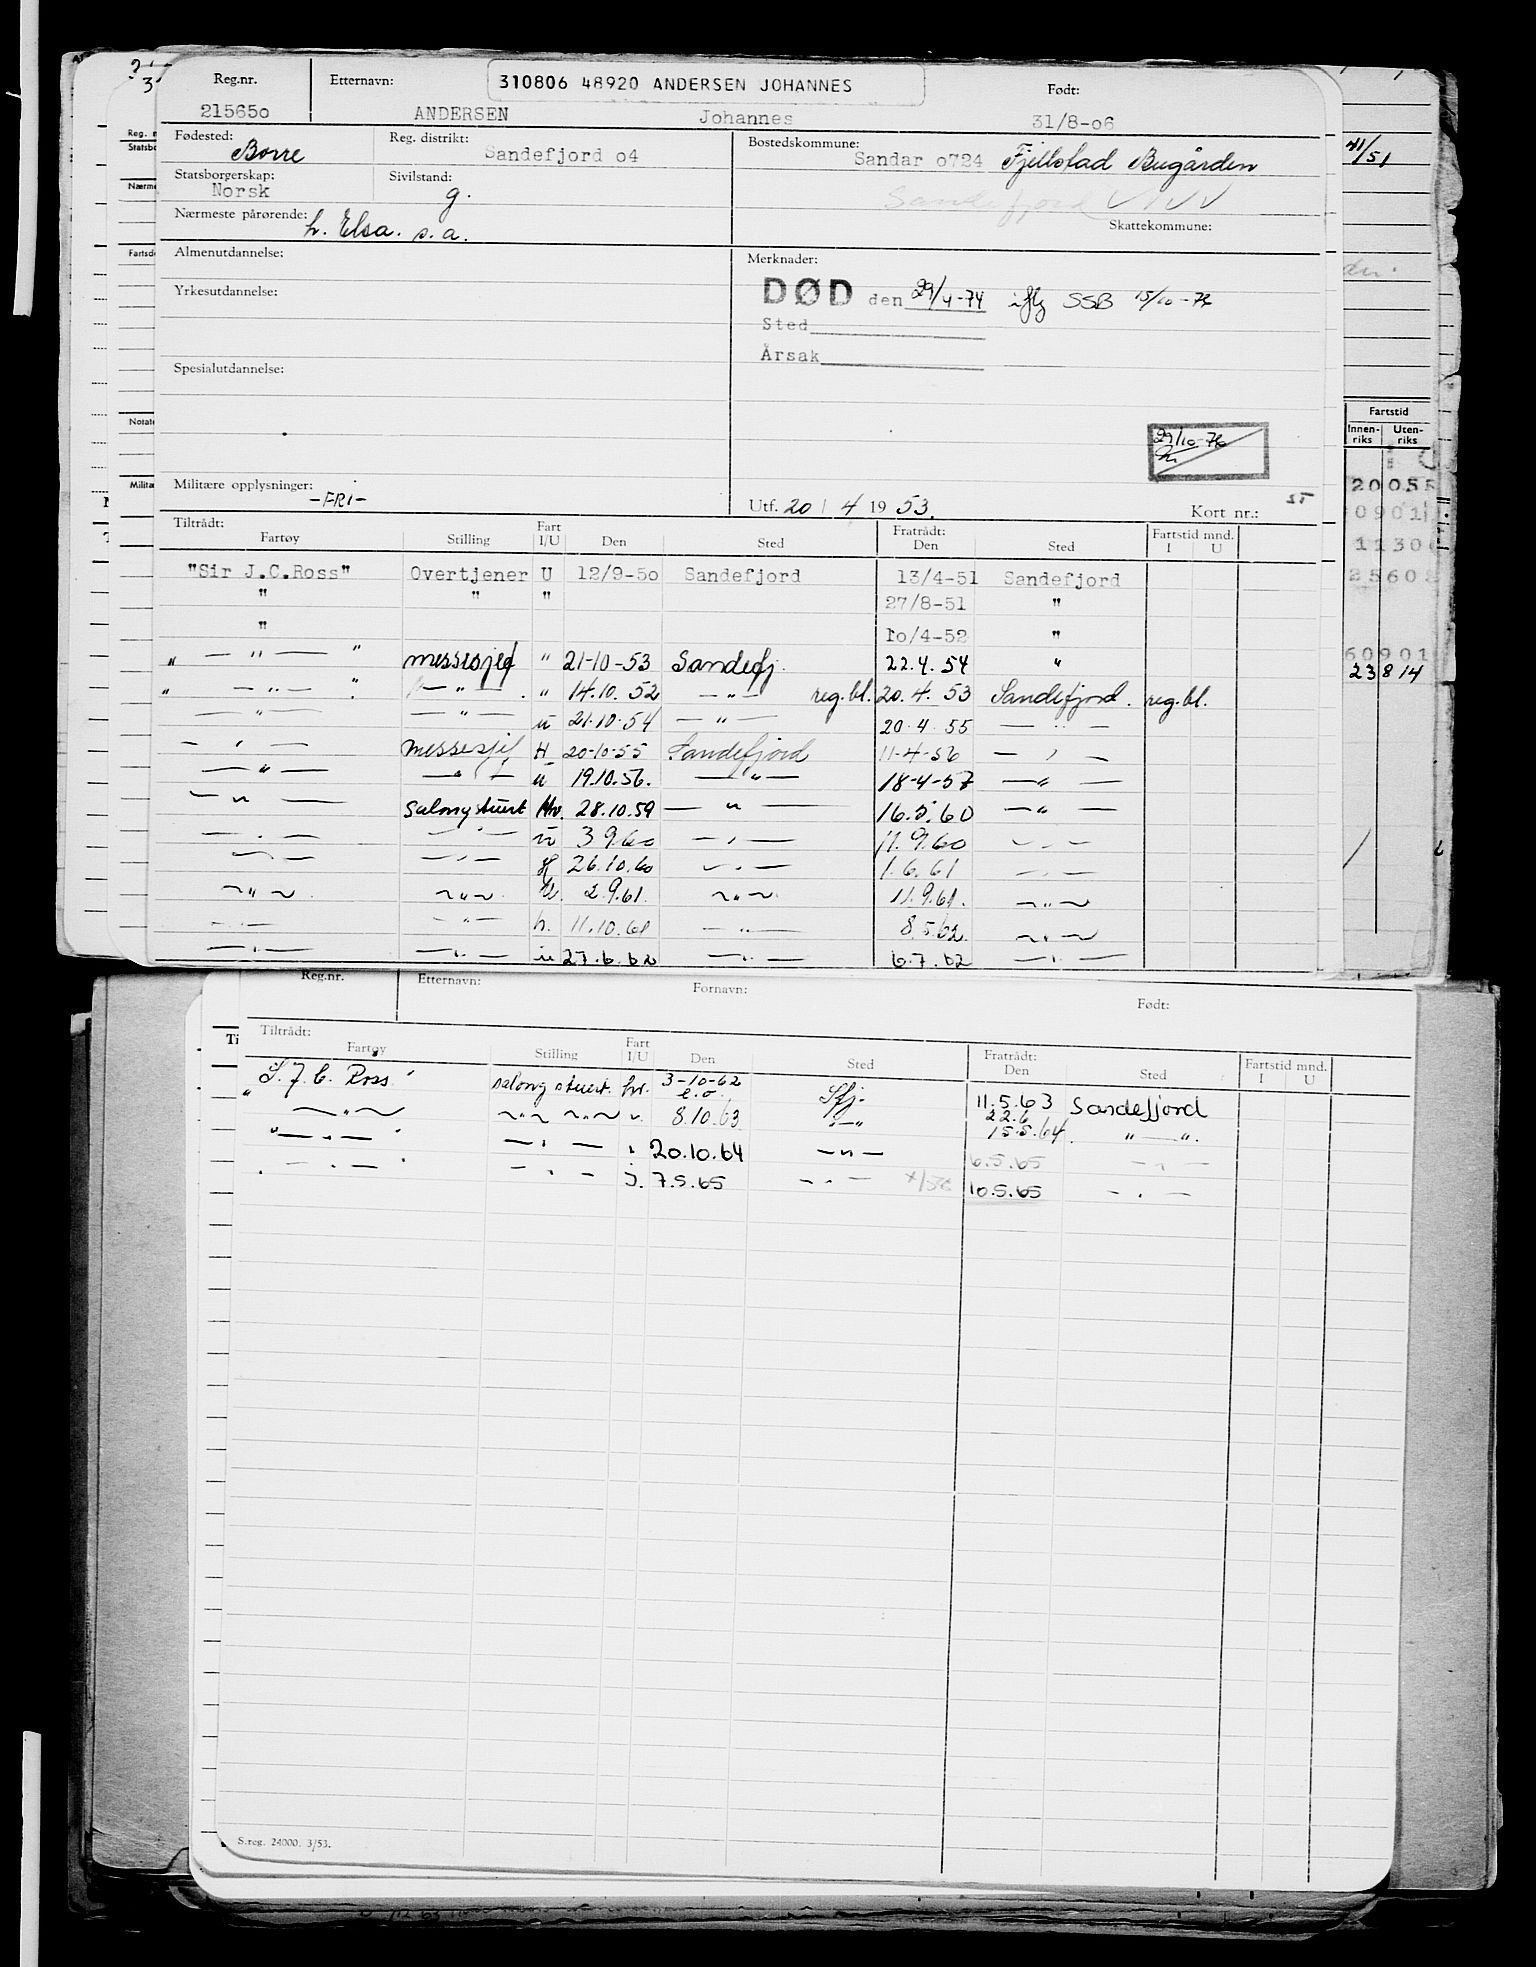 310806 48920 ANDERSEN JOHANNES
Reg.nr. Etternavn: Født:
215650 ANDERSEN Johannes 31/8-06
Fødested: Borre Reg. distrikt: Sandefjord 04 Bostedskommune: Sandar 0724 Fjellstad Bugården
Statsborgerskap: Norsk Sivilstand: g. Sandefjord
Nærmeste pårørende: h. Elsa. s.a. Skattekommune:
Almenutdannelse: Merknader:
Yrkesutdannelse: DØD den 29/4-74 iflg SSB 15/10-76
Sted
Årsak
Spesialutdannelse:
29/10-76
Militære opplysninger: -FRI- Utf. 20/4 1953. Kort nr.:
Tiltrådt: Fart Fratrådt: Fartstid mnd.
Fartøy Stilling I/U Den Sted Den Sted I U
"Sir J.C.Ross" Overtjener U 12/9-50 Sandefjord 13/4-51 Sandefjord
" " " 27/8-51 "
" 10/4-52 "
" — " — " messesjef " 21-10-53 Sandefj. 22.4.54 "
" — " — " — " — " 14.10.52 — " — reg.bl. 20.4.53 Sandefjord. reg.bl.
— " — — " — u 21.10.54 — " — 20.4.55 — " —
— " — messesjef H 20-10-55 Sandefjord 11-4-56 — " —
— " — — " — u 19.10.56. — " — 18-4-57 — " —
— " — salongstuert Hv. 28.10.59 — " — 16.5.60 — " —
— " — — " — u 3.9.60 — " — 11.9.60 — " —
— " — — " — H 26.10.60 — " — 1.6.61 — " —
— " — — " — U. 2.9.61. — " — 11.9.61. — " —
— " — — " — h. 11.10.61 — " — 8.5.62. — " —
— " — — " — u 27.6.62 — " — 6.7.62 — " —
41/51
Fartstid
Innenriks Utenriks
23 8 14
Reg.nr. Etternavn: Fornavn: Født:
Tiltrådt: Fart Fratrådt: Fartstid mnd.
Fartøy Stilling I/U Den Sted Den Sted I U
"S. J. C. Ross" salong stuert. hv. 3-10-62 e.o. Sfj. 11.5.63 Sandefjord
22.6
— " — — " — — " — v. 8.10.63 — " — 15.5.64. " — ".
" — " — " — " — " 20.10.64 — " — 6.5.65 — " —
" — " — " — " — j. 7.5.65 — " — 10.5.65 — " —
S.reg. 24000. 3/53.